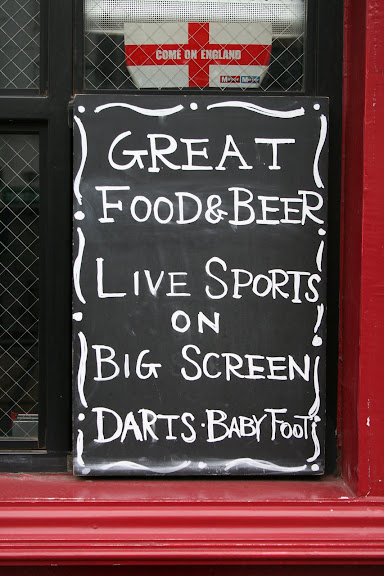 COME ON ENGLAND
GREAT
FOOD & BEER
LIVE SPORTS
ON
BIG SCREEN
DARTS · BABY FOOT